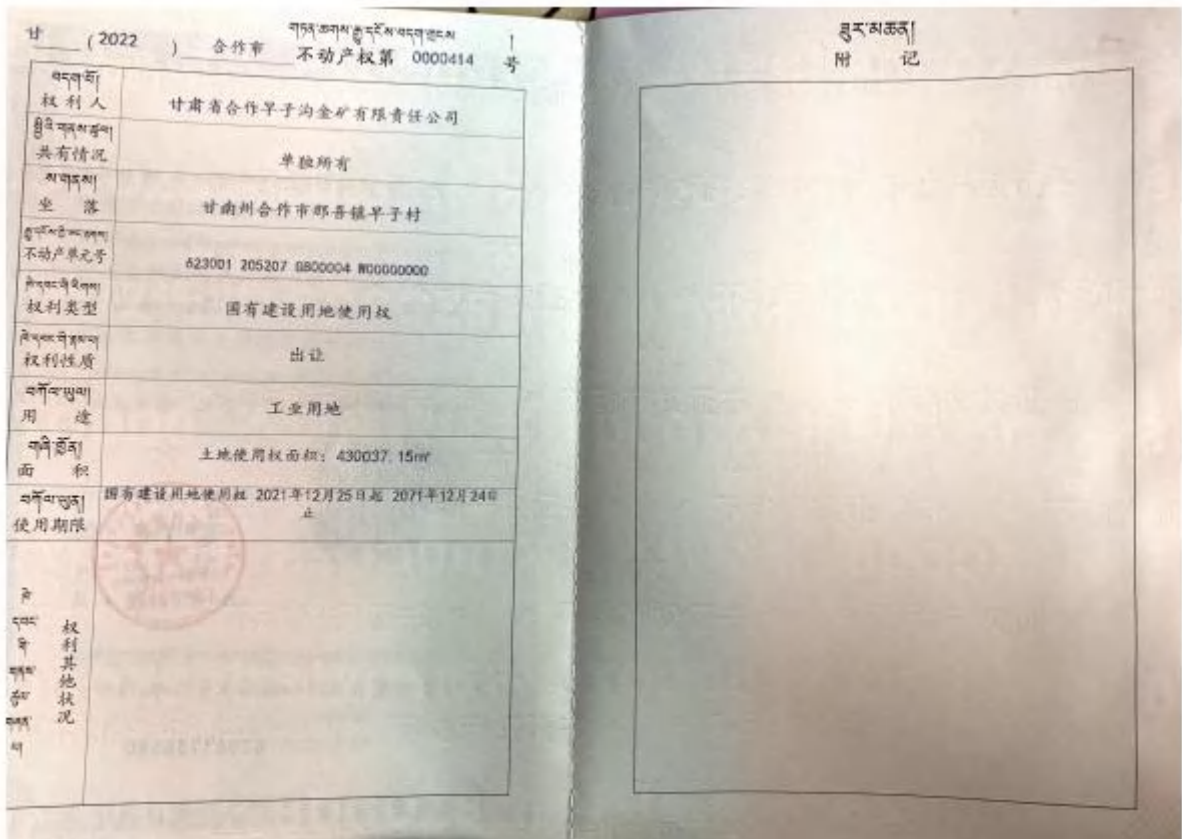 གཏན་ཆགས་རྒྱུ་དངོས་བདག་གྲངས
甘 (2022 ) 合作市 不动产权第 0000414 号
བདག་པོ།
权利人 甘肃省合作早子沟金矿有限责任公司
སྤྱིའི་གནས་ཚུལ།
共有情况 单独所有
ས་གནས།
坐 落 甘南州合作市那吾镇早子村
不动产单元号 623001 205207 GB00004 W00000000
权利类型 国有建设用地使用权
权利性质 出让
བཀོལ་ཡུལ།
用 途 工业用地
གཞི་ཁྱོན།
面 积 土地使用权面积：430037.15㎡
བཀོལ་ཡུན།
使用期限 国有建设用地使用权 2021年12月25日起 2071年12月24日止
权利其他状况
ཟུར་མཆན།
附 记